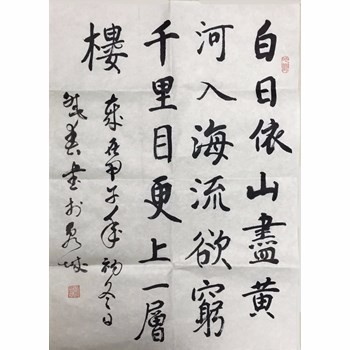 白日依山盡黄
河入海流欲窮
千里目更上一層
樓
歲在甲年初冬日
書於泉城